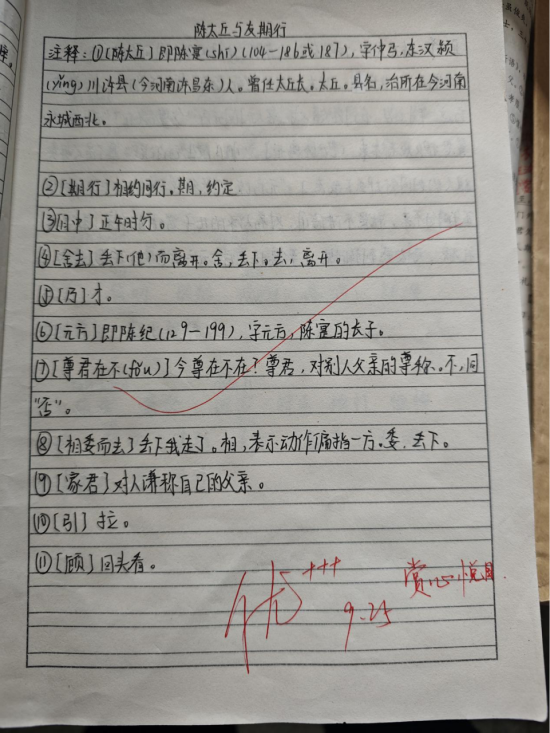 陈太丘与友期行
注释:①[陈太丘]即陈寔(shí)(104-186或187),字仲弓,东汉颍
(yǐng)川许县(今河南许昌东)人。曾任太丘长。太丘,县名,治所在今河南
永城西北。
②[期行]相约同行。期,约定.
③[日中]正午时分。
④[舍去]丢下(他)而离开。舍,丢下。去,离开。
⑤[乃]才。
⑥[元方]即陈纪(129-199),字元方,陈寔的长子。
⑦[尊君在不(fǒu)]令尊在不在?尊君,对别人父亲的尊称。不,同
“否”。
⑧[相委而去]丢下我走了。相,表示动作偏指一方。委,丢下。
⑨[家君]对人谦称自己的父亲。
⑩[引]拉。
⑪[顾]回头看。
优+++
赏心悦目
9.25